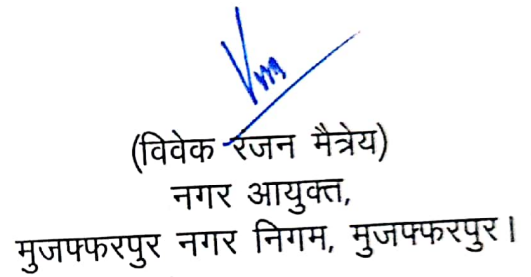 (विवेक रंजन मैत्रेय)
नगर आयुक्त,
मुजफ्फरपुर नगर निगम, मुजफ्फरपुर।